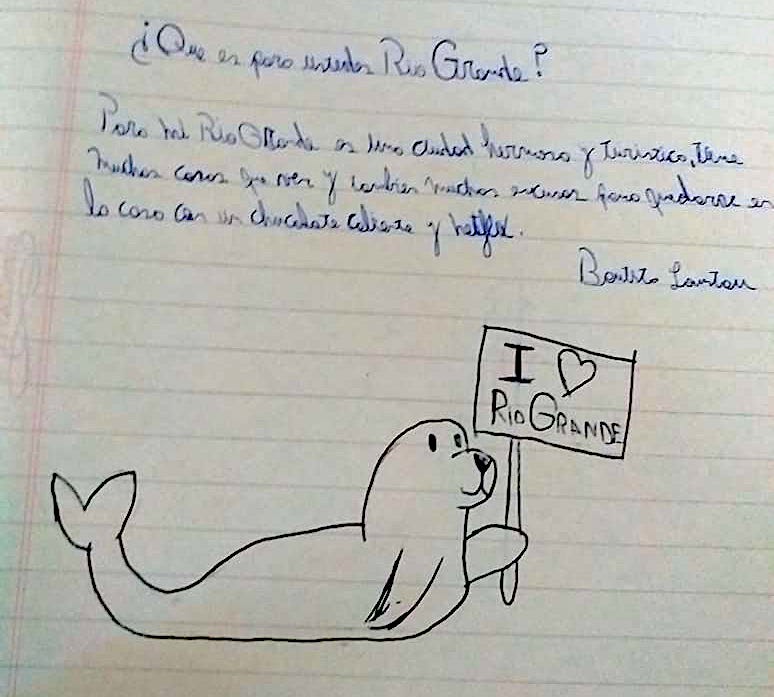 ¿Que es para ustedes Rio Grande?
Para mi Rio Grande es una ciudad hermosa y turistica, tiene
muchas cosas que ver y tambien muchas excusas para quedarse en
la casa con un chocolate caliente y netflix.
I ♡
RIO GRANDE